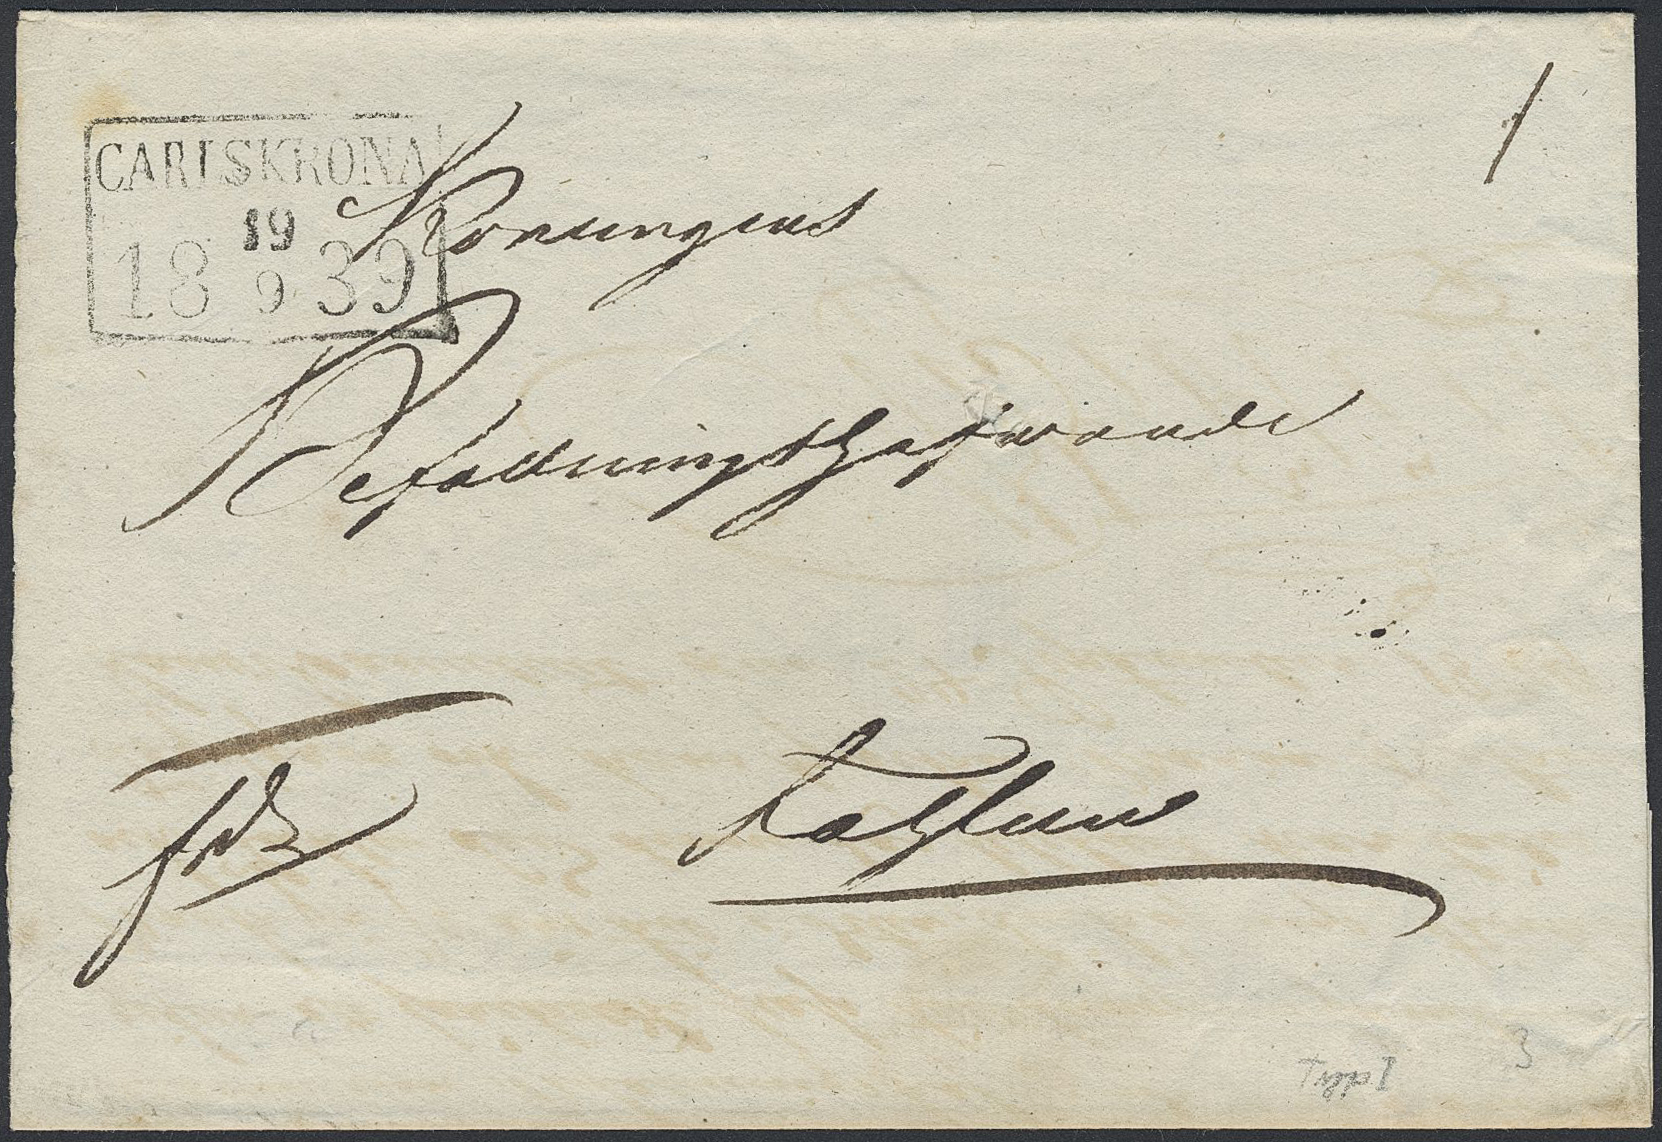 1
CARLSKRONA
19
18 9 39
Konungens
Befallningshafwande
Fahlun
Typ I
3